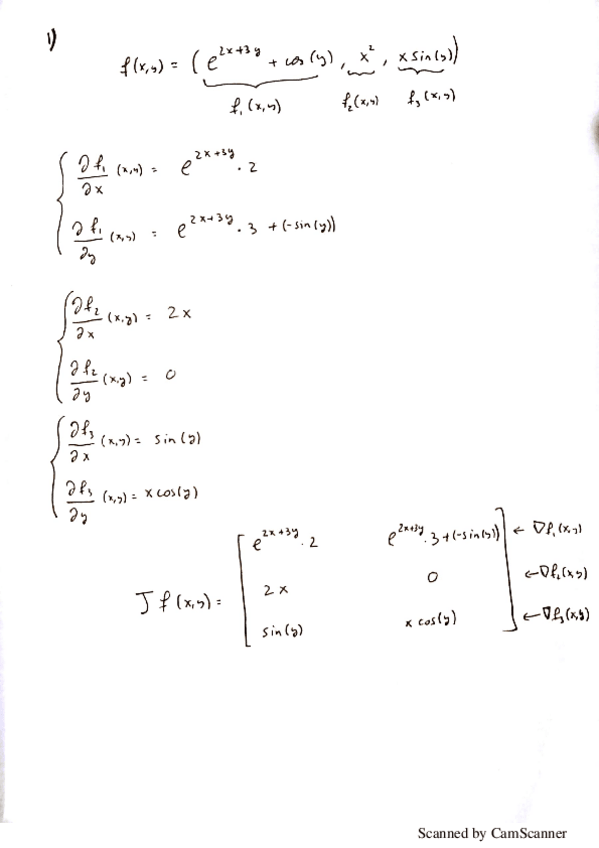 1)
f(x,y) = (e^{2x+3y} + cos(y), x^2, x sin(y))
f_1(x,y) f_2(x,y) f_3(x,y)
∂f_1/∂x (x,y) = e^{2x+3y} · 2
∂f_1/∂y (x,y) = e^{2x+3y} · 3 + (-sin(y))
∂f_2/∂x (x,y) = 2x
∂f_2/∂y (x,y) = 0
∂f_3/∂x (x,y) = sin(y)
∂f_3/∂y (x,y) = x cos(y)
e^{2x+3y} · 2 e^{2x+3y} · 3 + (-sin(y)) ← ∇f_1(x,y)
J f(x,y) = 2x 0 ← ∇f_2(x,y)
sin(y) x cos(y) ← ∇f_3(x,y)
Scanned by CamScanner